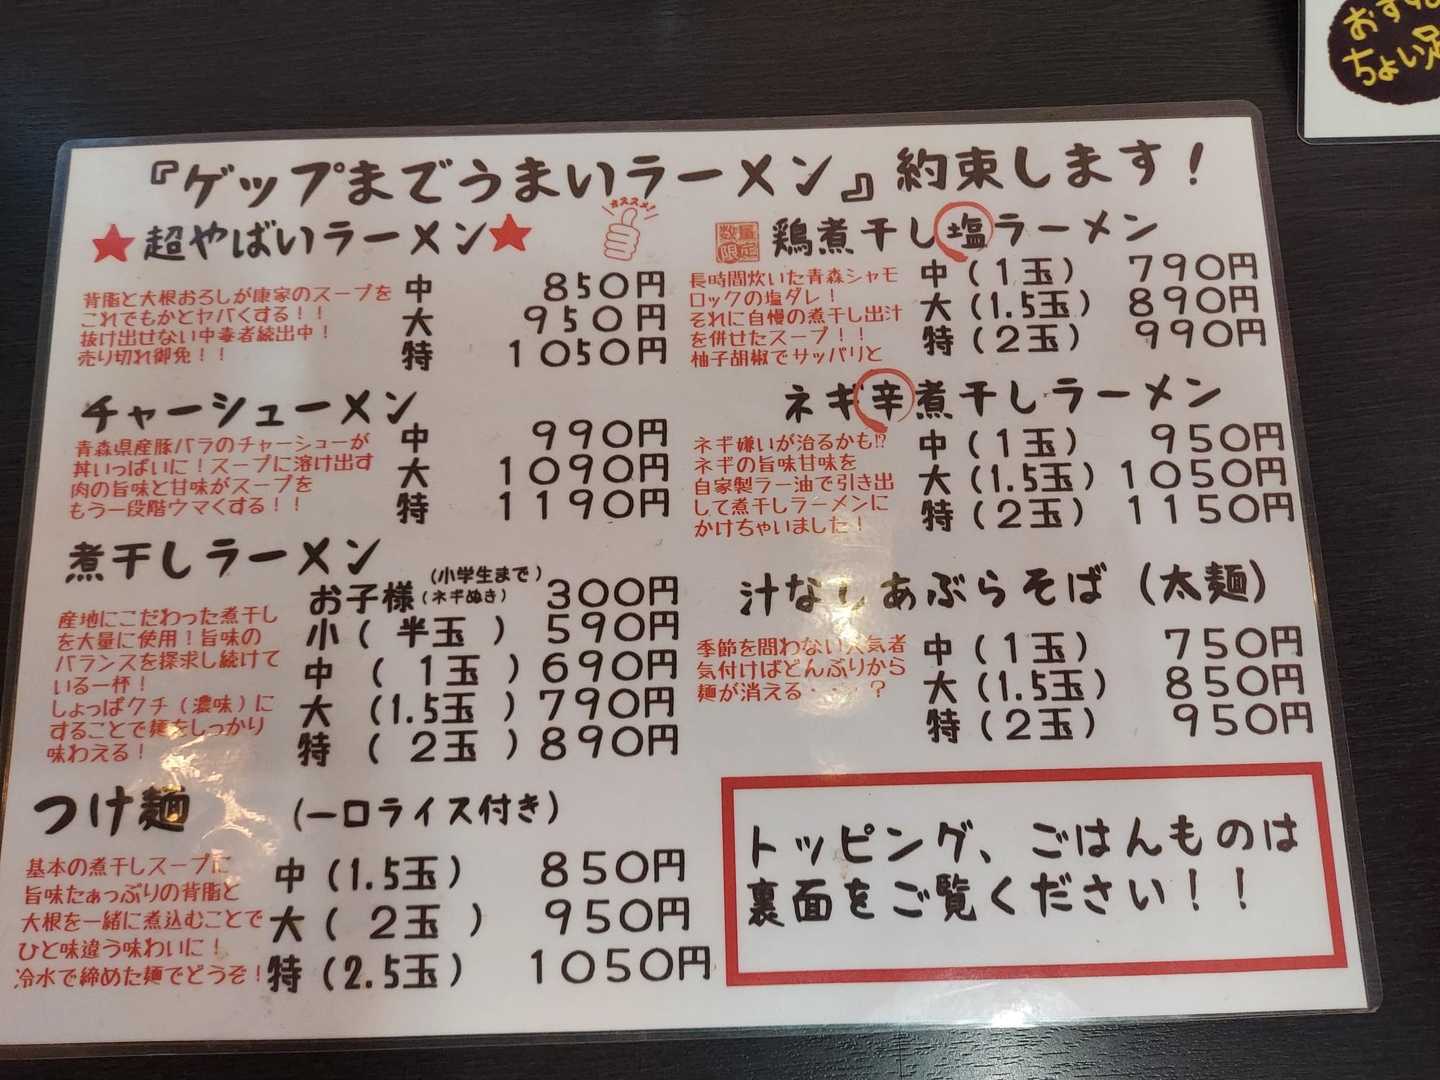 『ゲップまでうまいラーメン』約束します！
★超やばいラーメン★
オススメ！
背脂と大根おろしが康家のスープを
これでもかとヤバくする！！
抜け出せない中毒者続出中！
売り切れ御免！！
中 850円
大 950円
特 1050円
チャーシューメン
青森県産豚バラのチャーシューが
丼いっぱいに！スープに溶け出す
肉の旨味と甘味がスープを
もう一段階ウマくする！！
中 990円
大 1090円
特 1190円
煮干しラーメン
産地にこだわった煮干し
を大量に使用！旨味の
バランスを探求し続けて
いる一杯！
しょっぱクチ（濃味）に
することで麺をしっかり
味わえる！
お子様（小学生まで）（ネギぬき） 300円
小（半玉） 590円
中（1玉） 690円
大（1.5玉） 790円
特（2玉） 890円
つけ麺 （一口ライス付き）
基本の煮干しスープに
旨味たぁっぷりの背脂と
大根を一緒に煮込むことで
ひと味違う味わいに！
冷水で締めた麺でどうぞ！
中（1.5玉） 850円
大（2玉） 950円
特（2.5玉） 1050円
数量限定
鶏煮干し塩ラーメン
長時間炊いた青森シャモ
ロックの塩ダレ！
それに自慢の煮干し出汁
を併せたスープ！！
柚子胡椒でサッパリと
中（1玉） 790円
大（1.5玉） 890円
特（2玉） 990円
ネギ辛煮干しラーメン
ネギ嫌いが治るかも⁉
ネギの旨味甘味を
自家製ラー油で引き出
して煮干しラーメンに
かけちゃいました！
中（1玉） 950円
大（1.5玉） 1050円
特（2玉） 1150円
汁なしあぶらそば（太麺）
季節を問わない人気者
気付けばどんぶりから
麺が消える・・・？
中（1玉） 750円
大（1.5玉） 850円
特（2玉） 950円
トッピング、ごはんものは
裏面をご覧ください！！
ちょい足